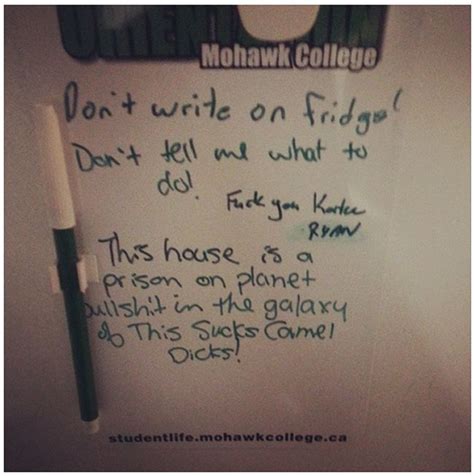 ORIENTATION
Mohawk College
Don't write on fridge!
Don't tell me what to
do!
Fuck you Karlee
RYAN
This house is a
prison on planet
bullshit in the galaxy
of This Sucks Camel
Dicks!
studentlife.mohawkcollege.ca